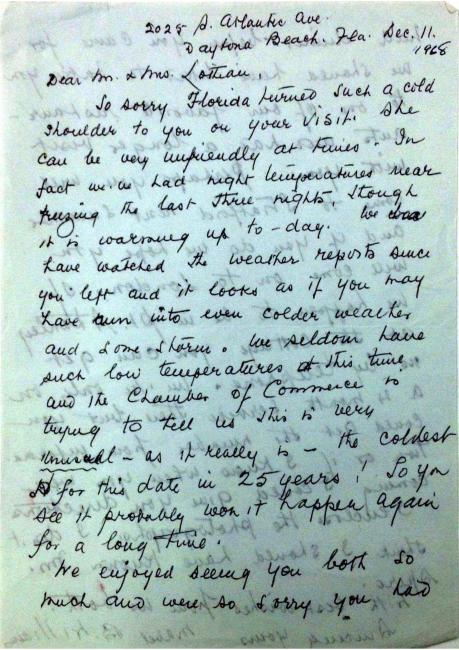 2025 S. Atlantic Ave.
Daytona Beach. Fla. Dec. 11.
1968
Dear Mr. & Mrs. Lothian,
So sorry Florida turned such a cold
shoulder to you on your visit. She
can be very unfriendly at times. In
fact we had night temperatures near
freezing the last three nights, though
it is warming up to-day. We
have watched the weather reports since
you left and it looks as if you may
have run into even colder weather
and some storm. We seldom have
such low temperatures at this time
and the Chamber of Commerce is
trying to tell us this is very
unusual - as it really is - the coldest
for this date in 25 years! So you
see it probably won't happen again
for a long time.
We enjoyed seeing you both so
much and were so sorry you had